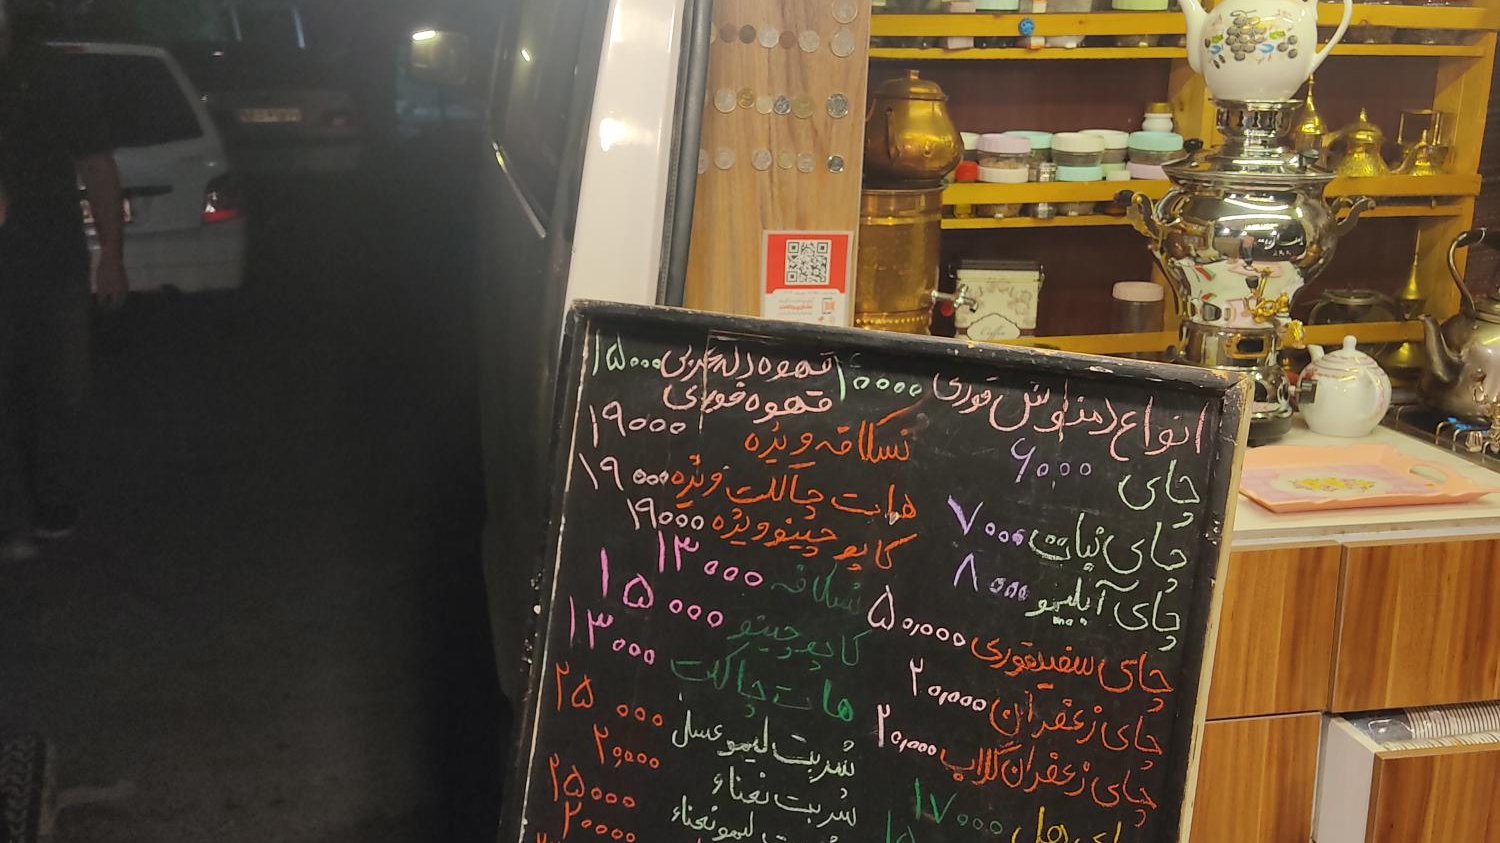 انواع دمنوش قوری ۴۰۰۰۰
چای ۶۰۰۰
چای نبات ۷۰۰۰
چای آبلیمو ۸۰۰۰
چای سفید قوری ۵۰,۰۰۰
چای زعفران ۲۰,۰۰۰
چای زعفران گلاب ۲۰,۰۰۰
چای هل ۱۷۰۰۰
قهوه دله عربی ۱۵۰۰۰
قهوه فوری
نسکافه ویژه ۱۹۰۰۰
هات چاکلت ویژه ۱۹۰۰۰
کاپوچینو ویژه ۱۹۰۰۰
نسکافه ۱۳۰۰۰
کاپوچینو ۱۵۰۰۰
هات چاکلت ۱۳۰۰۰
شربت لیمو عسل ۲۵۰۰۰
شربت نعناء ۲۰,۰۰۰
لیمو نعناء ۲۵۰۰۰
۲۰۰۰۰
Coffee